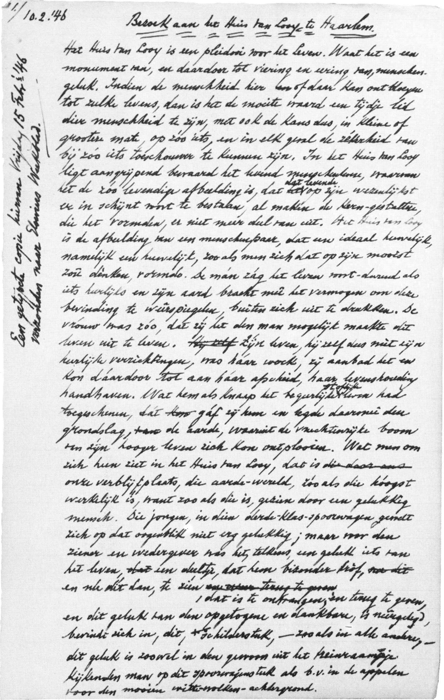 1/ 10.2.'46
Bezoek aan het Huis van Looy te Haarlem.
Het Huis van Looy is een pleidooi voor het leven. Want het is een
monument van, en daardoor tot viering en eering van, menschen-
geluk. Indien de menschheid hier en daar kan ontluiken
tot zulke levens, dan is het de moeite waard een tijdje lid
dier menschheid te zijn, met ook de kans dus, in kleine of
grootere mate, op zóo iets, en in elk geval de zekerheid van
bij zóo iets toeschouwer te kunnen zijn. In het Huis van Looy
ligt aangrijpend bewaard het levend menschenleven, waarvan
het de zóo levendige afbeelding is, dat het levende op zijn wezenlijkst
er in schijnt voort te bestaan, al maken de kern-gestalten
die het vormden, er niet meer deel van uit. Het Huis van Looy
is de afbeelding van een menschenpaar, dat een ideaal huwelijk,
namelijk een huwelijk, zoo als men zich dat op zijn mooist
zoû denken, vormde. De man zág het leven voort-durend als
iets heerlijks en zijn aard bracht met het vermogen om deze
bevinding te weerspiegelen, buiten zich uit te drukken. De
vrouw was zóo, dat zij het den man mogelijk maakte dit
leven uit te leven. Zijn leven, hij zelf dus met zijn
heerlijke verrichtingen, was háar werk, zij aanbad het en
kon dáardoor tot aan háar afscheid, haar levenshouding
handhaven. Wat hem als knaap het begeerlijkste leven had
toegeschenen, dát gáf zij hem en legde daarmeê den
grondslag, de aarde, waaruit de vruchtenrijke boom
van zijn hooger leven zich kon ontplooien. Wat men om
zich heen ziet in het Huis van Looy, dat is
onze verblijfplaats, die aarde-wereld, zóo als die hoogst
werkelijk is, want zoo als die is, gezien door een gelukkig
mensch. Die jongen, in dien derde-klas-spoorwagen gevoelt
zich op dat oogenblik niet erg gelukkig; maar voor den
ziener en wedergever was het, telkens, een geluk iets van
het leven, dat hem bizonder trof,
en nle dit dan, te zien
, dat is te ontvangen, en terug te geven,
en dit geluk van den opgetogene en dankbare, is neêrgelegd,
bevindt zich in, dit schilderstuk, — zooals in alle andere, —
dit geluk is zoowel in den gewoon uit het treinraampje
kijkenden man op dit spoorwagenstuk als b.v. in de appelen
voor den mooien witte-wolken-achtergrond.
Een getijpte copie hiervan Vrijdag 15 Febr. '46
verzonden naar Weekblad.